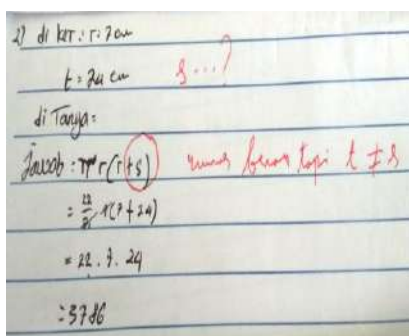 2) di ket : r : 7 cm
t = 24 cm s ...?
di Tanya =
Jawab : π r (r + s) rumus benar tapi t ≠ s
= 22/7 . 7 (7 + 24)
= 22 . 7 . 24
= 3786